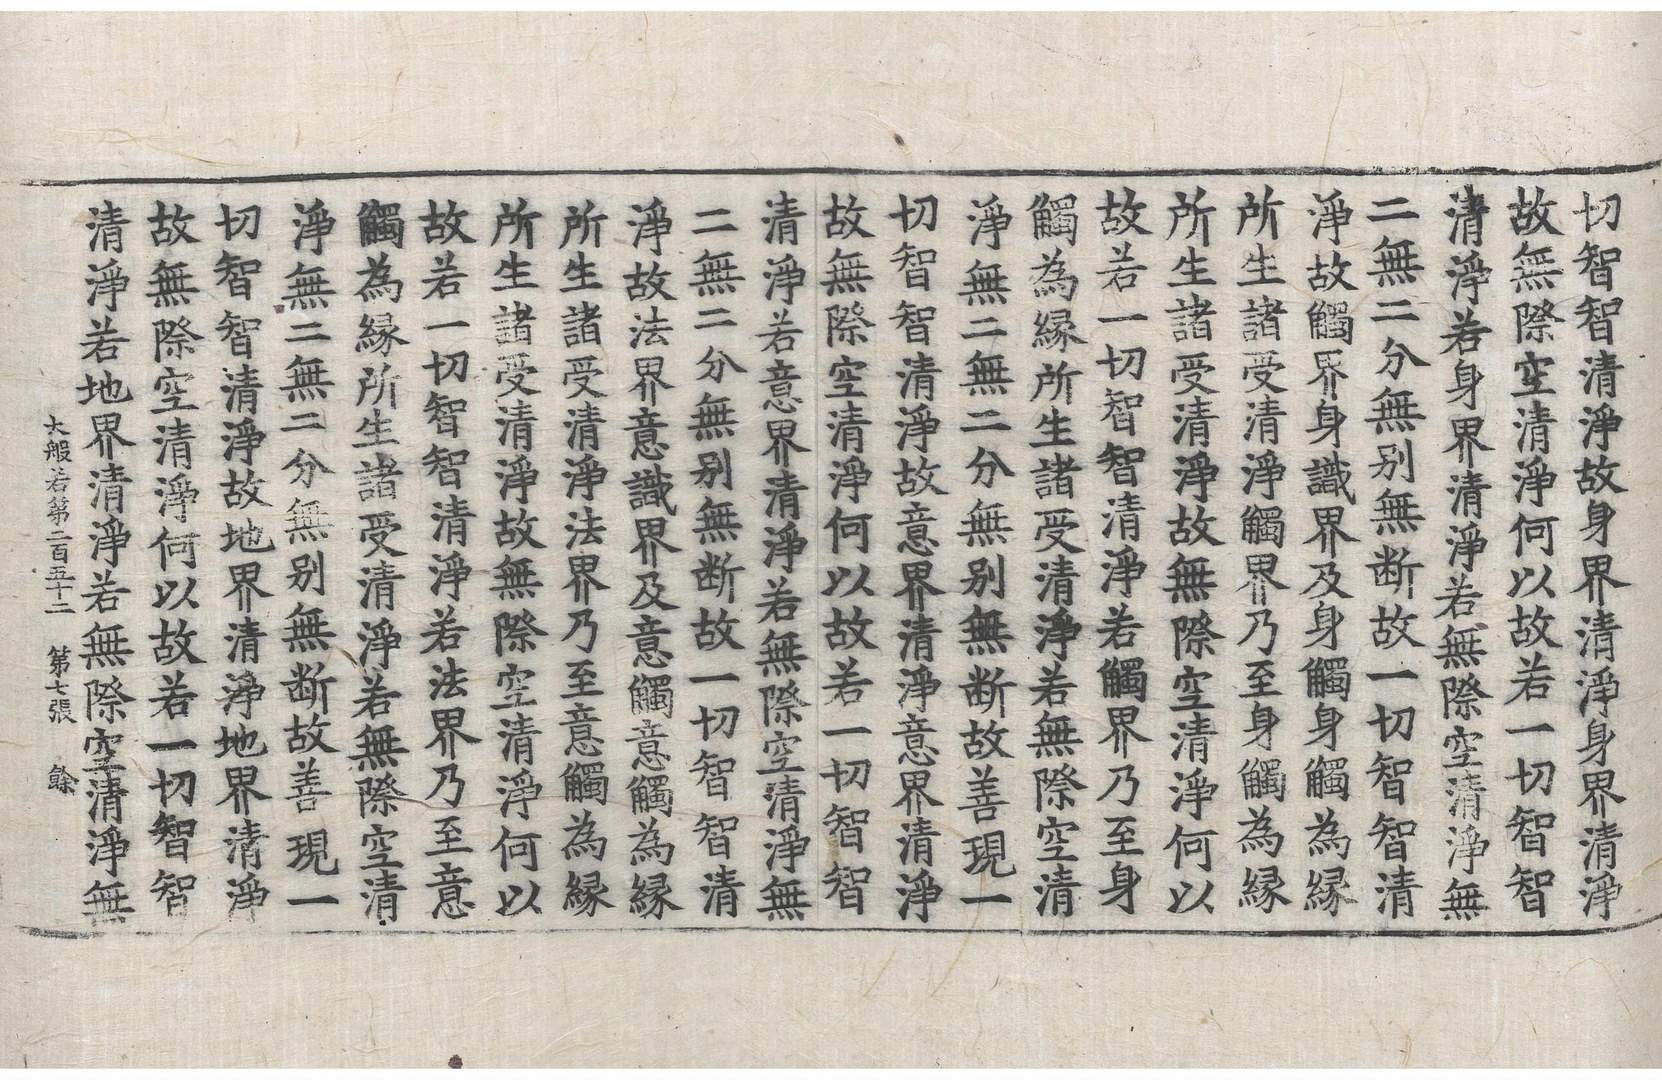 切智智清淨故身界清淨身界清淨
故無際空清淨何以故若一切智智
清淨若身界清淨若無際空清淨無
二無二分無別無断故一切智智清
淨故觸界身識界及身觸身觸為縁
所生諸受清淨觸界乃至身觸為縁
所生諸受清淨故無際空清淨何以
故若一切智智清淨若觸界乃至身
觸為縁所生諸受清淨若無際空清
淨無二無二分無別無断故善現一
切智智清淨故意界清淨意界清淨
故無際空清淨何以故若一切智智
清淨若意界清淨若無際空清淨無
二無二分無別無断故一切智智清
淨故法界意識界及意觸意觸為縁
所生諸受清淨法界乃至意觸為縁
所生諸受清淨故無際空清淨何以
故若一切智智清淨若法界乃至意
觸為縁所生諸受清淨若無際空清
淨無二無二分無別無断故善現一
切智智清淨故地界清淨地界清淨
故無際空清淨何以故若一切智智
清淨若地界清淨若無際空清淨無
大般若第二百五十二 第七張 餘